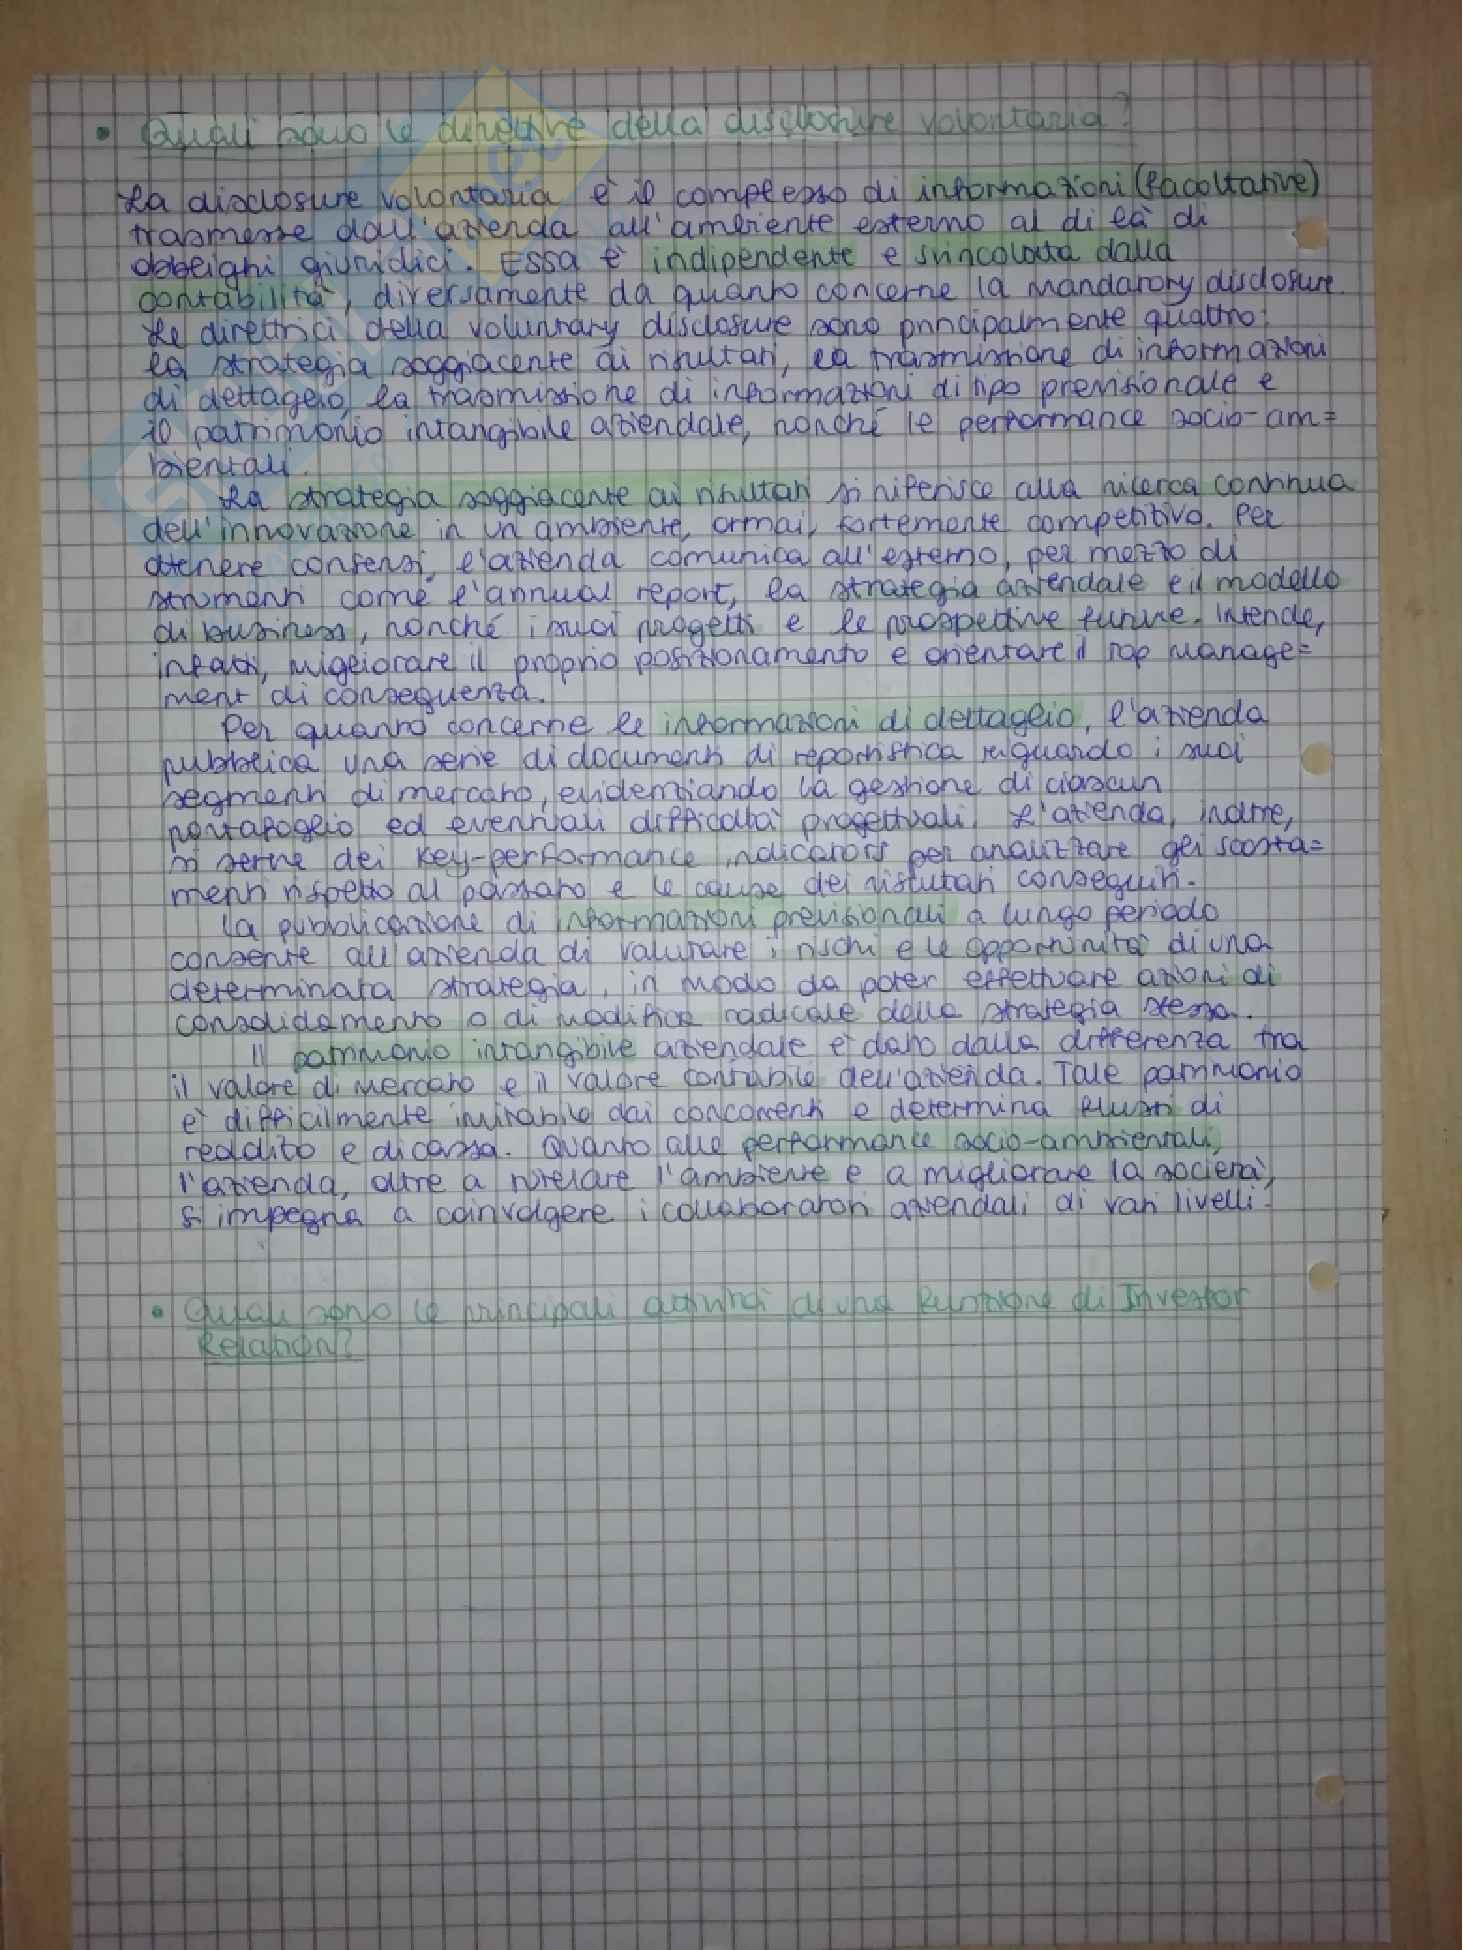 • Quali sono le direttive della disclosure volontaria?
La disclosure volontaria è il complesso di informazioni (facoltative)
trasmesse dall'azienda all'ambiente esterno al di là di
obblighi giuridici. Essa è indipendente e svincolata dalla
contabilità, diversamente da quanto concerne la mandatory disclosure.
Le direttrici della voluntary disclosure sono principalmente quattro:
la strategia soggiacente ai risultati, la trasmissione di informazioni
di dettaglio, la trasmissione di informazioni di tipo previsionale e
il patrimonio intangibile aziendale, nonché le performance socio-am=
bientali.
La strategia soggiacente ai risultati si riferisce alla ricerca continua
dell'innovazione in un ambiente, ormai, fortemente competitivo. Per
ottenere consensi, l'azienda comunica all'esterno, per mezzo di
strumenti come l'annual report, la strategia aziendale e il modello
di business, nonché i suoi progetti e le prospettive future. Intende,
infatti, migliorare il proprio posizionamento e orientare il top manage=
ment di conseguenza.
Per quanto concerne le informazioni di dettaglio, l'azienda
pubblica una serie di documenti di reportistica riguardo i suoi
segmenti di mercato, evidenziando la gestione di ciascun
portafoglio ed eventuali difficoltà progettuali. L'azienda, inoltre,
si serve dei key-performance indicators per analizzare gli scosta=
menti rispetto al passato e le cause dei risultati conseguiti.
La pubblicazione di informazioni previsionali a lungo periodo
consente all'azienda di valutare i rischi e le opportunità di una
determinata strategia, in modo da poter effettuare azioni di
consolidamento o di modifica radicale della strategia stessa.
Il patrimonio intangibile aziendale è dato dalla differenza tra
il valore di mercato e il valore contabile dell'azienda. Tale patrimonio
è difficilmente imitabile dai concorrenti e determina flussi di
reddito e di cassa. Quanto alle performance socio-ambientali,
l'azienda, oltre a tutelare l'ambiente e a migliorare la società,
si impegna a coinvolgere i collaboratori aziendali di vari livelli.
• Quali sono le principali attività di una funzione di Investor
Relation?